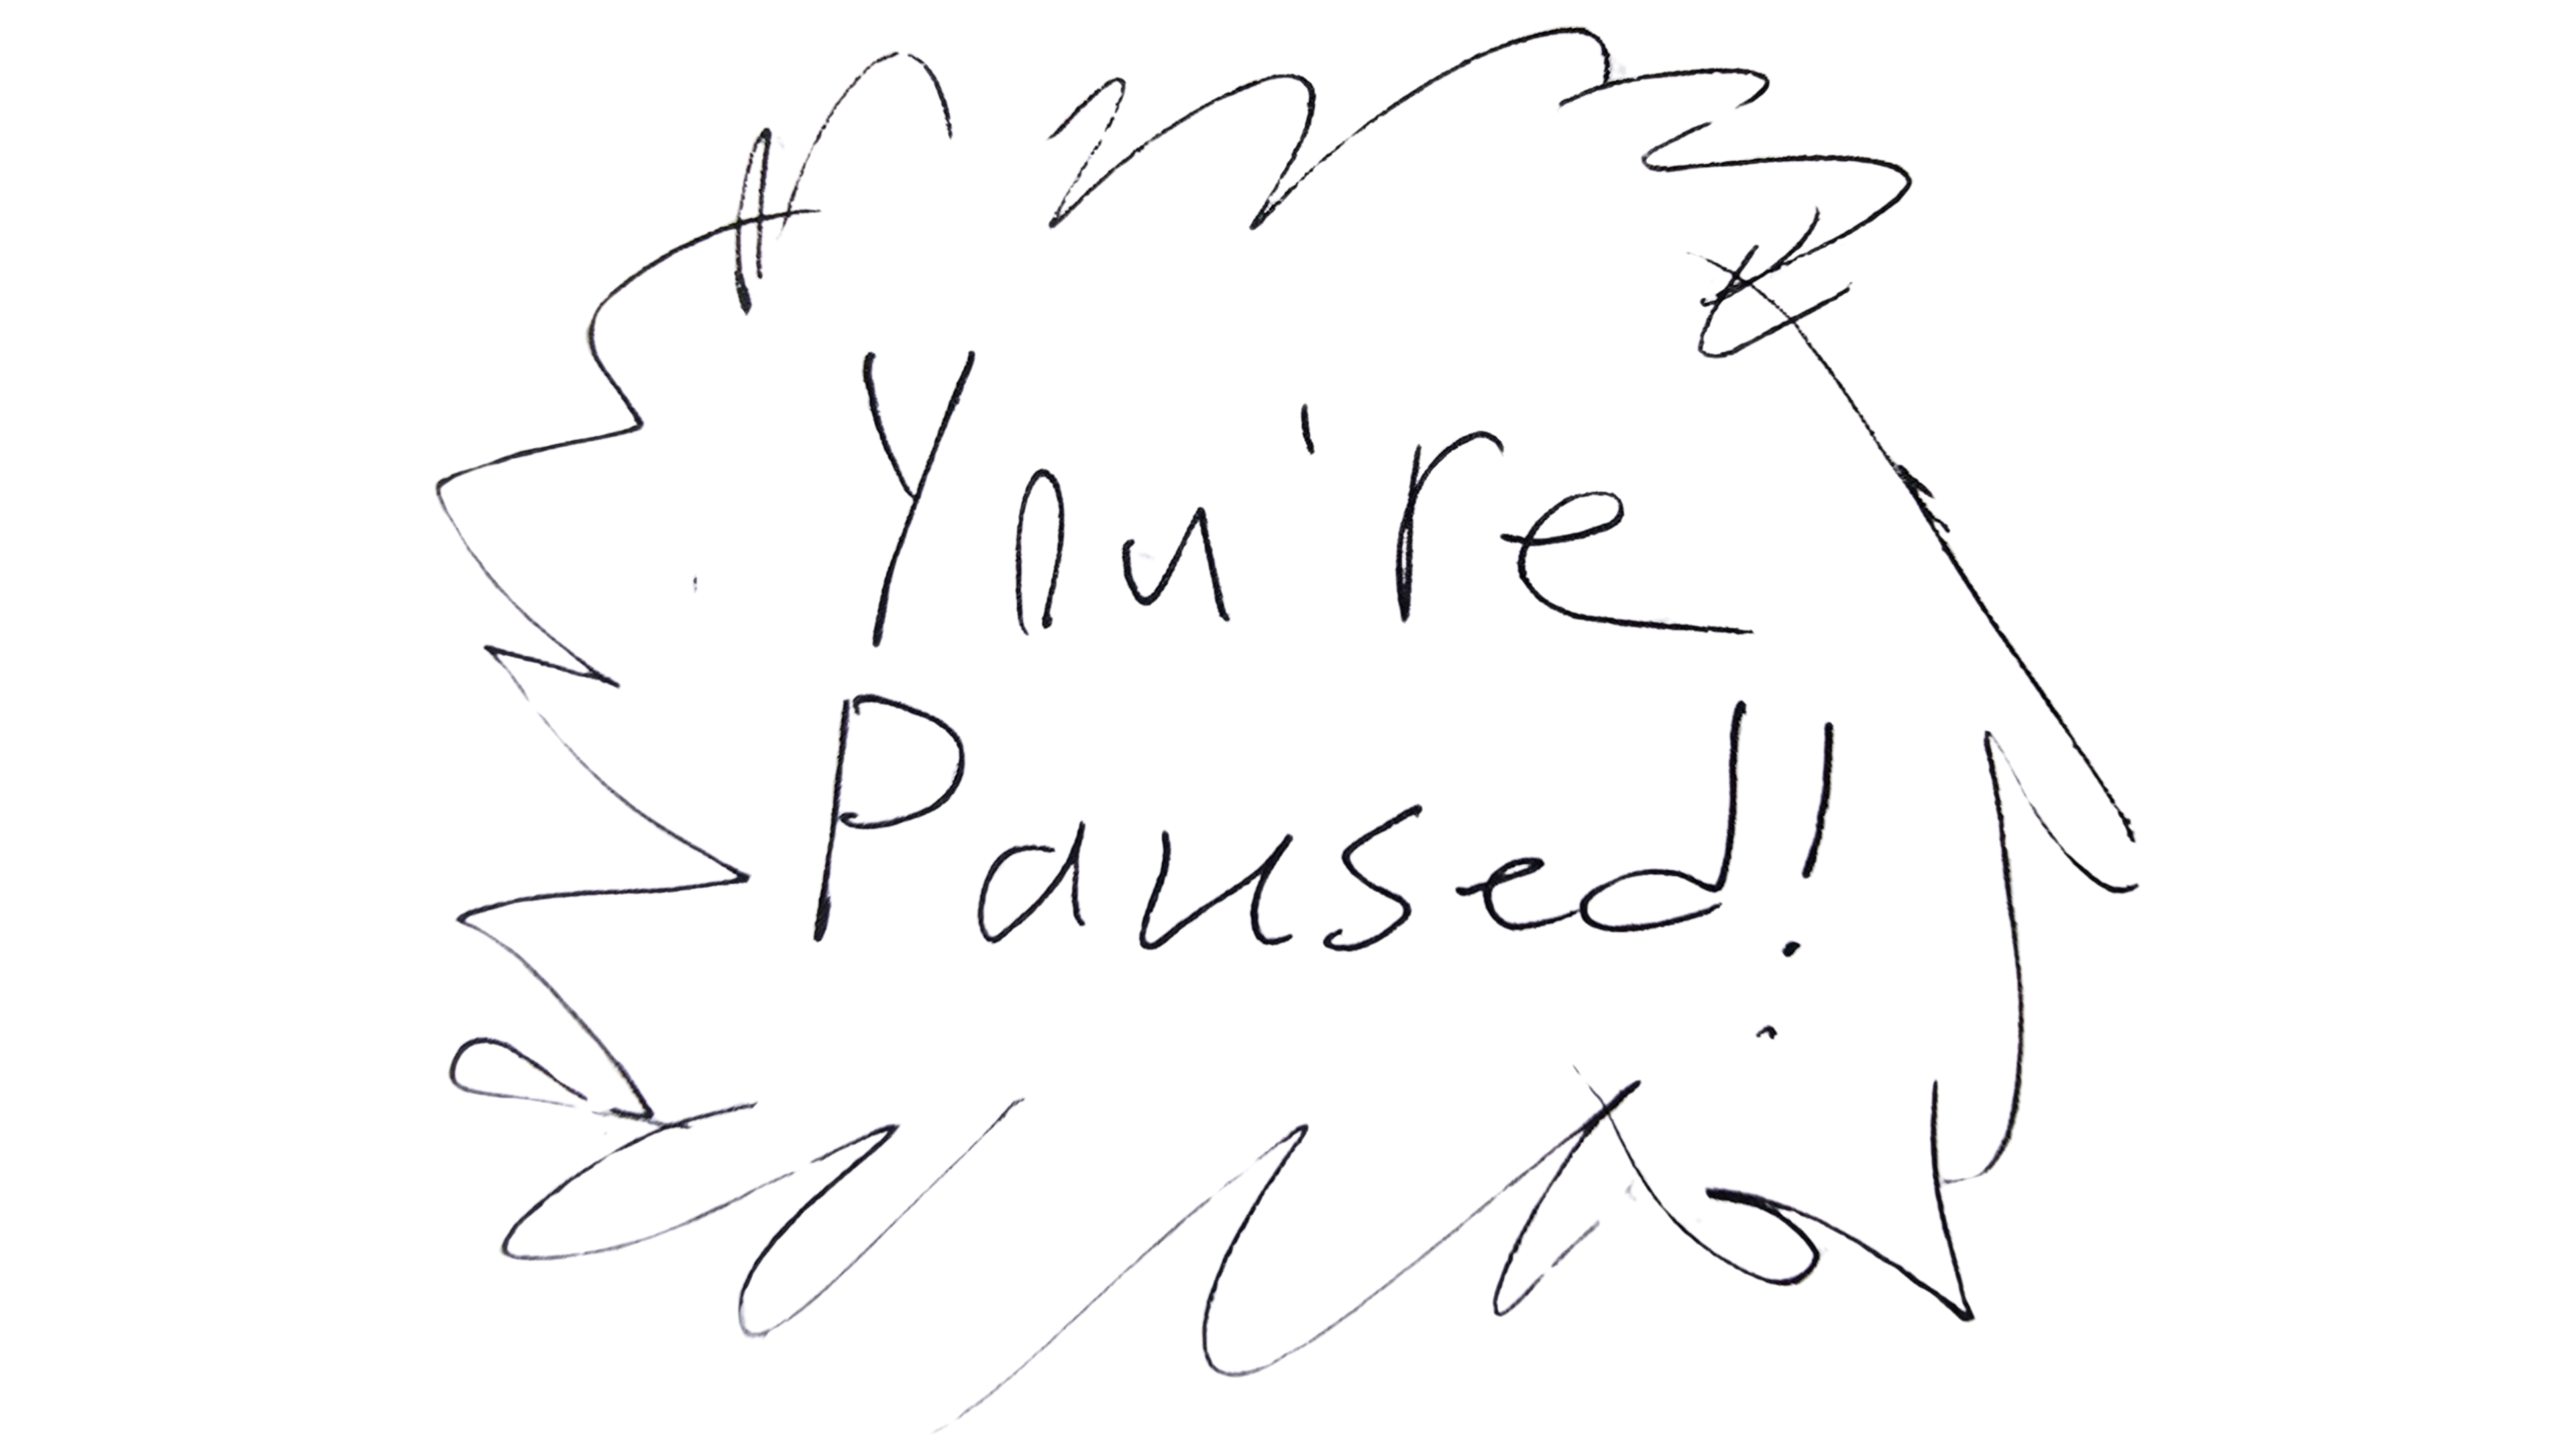 You're
Paused!